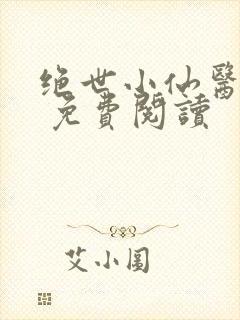 绝世小仙醫
免費閱讀
艾小圖